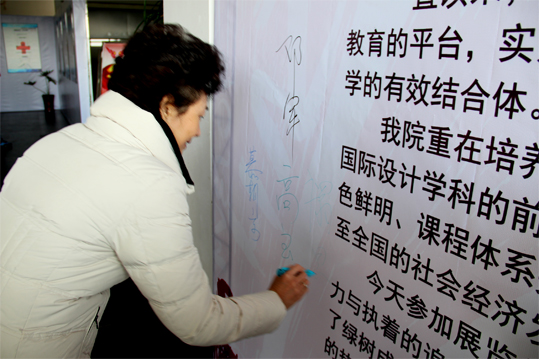 直以来，
教育的平台，实
学的有效结合体。
我院重在培养
国际设计学科的前
色鲜明、课程体系
至全国的社会经济发
今天参加展览
力与执着的追
了绿树成
的
邓军
高